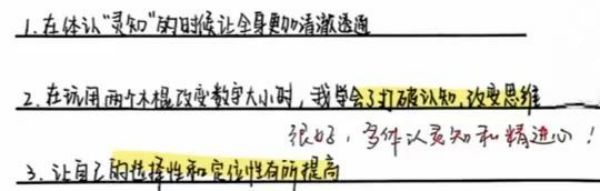 1.在体认“灵知”的时候让全身更加清澈透通
2.在玩用两个木棍改变数字大小时，我学会了打破认知，改变思维
很好，多体认灵知和精进心！
3.让自己的选择性和定位性有所提高